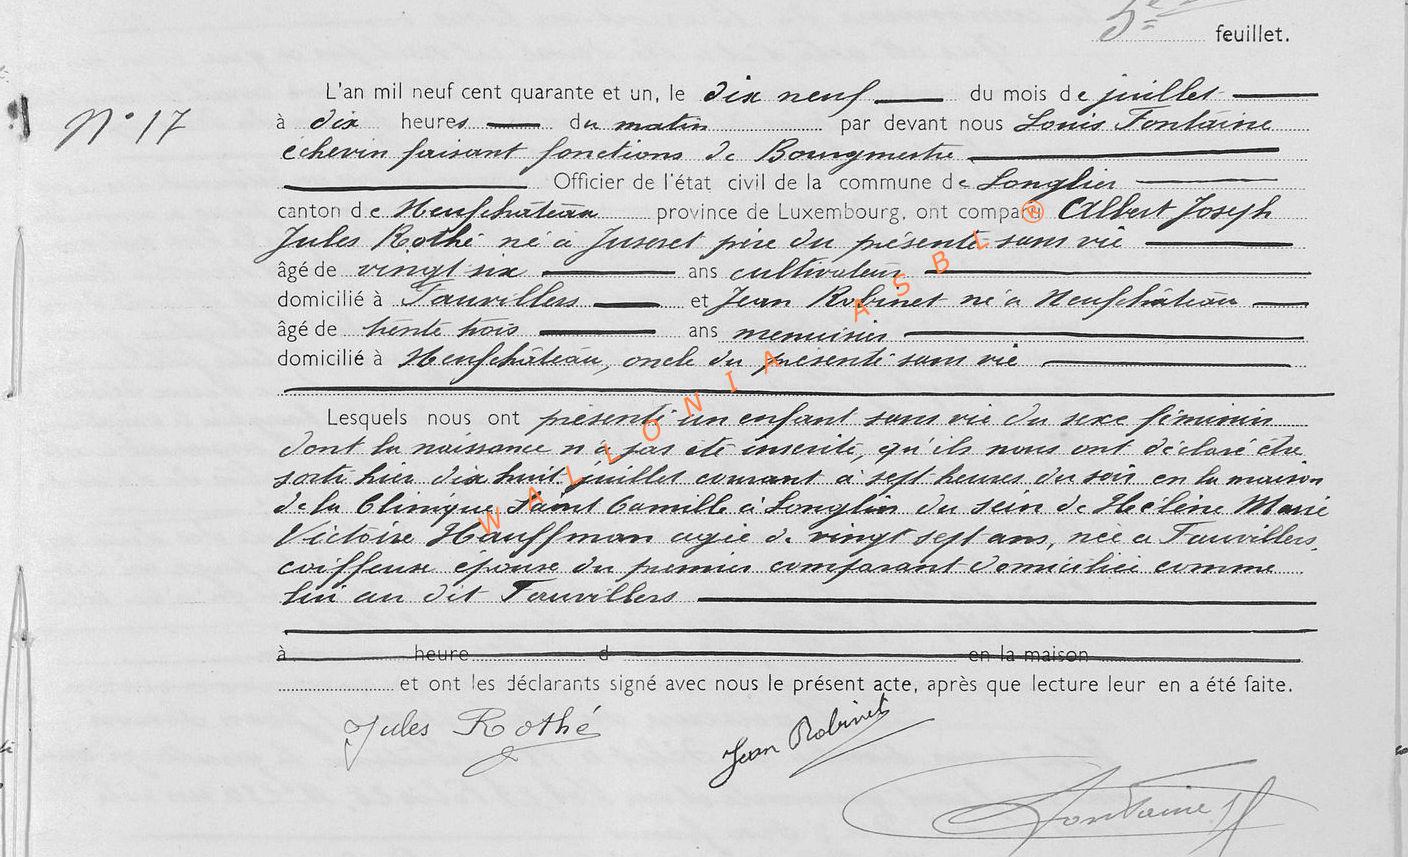 5e feuillet.
N° 17
L'an mil neuf cent quarante et un, le dix neuf du mois de juillet
à dix heures du matin par devant nous Louis Fontaine
échevin faisant fonctions de Bourgmestre
Officier de l'état civil de la commune de Longlier
canton de Neufchâteau province de Luxembourg, ont comparu Albert Joseph
Jules Rothé né à Juseret père du présenté sans vie
âgé de vingt six ans cultivateur
domicilié à Fauvillers et Jean Robinet né à Neufchâteau
âgé de trente trois ans menuisier
domicilié à Neufchâteau, oncle du présenté sans vie
Lesquels nous ont présenté un enfant sans vie du sexe féminin
dont la naissance n'a pas été inscrite, qu'ils nous ont déclaré être
sorti hier dix huit juillet courant à sept heures du soir en la maison
de la Clinique Saint Camille à Longlier du sein de Hélène Marie
Victoire Hauffman agée de vingt sept ans, née à Fauvillers,
coiffeuse épouse du premier comparant domiciliée comme
lui au dit Fauvillers
à heure d en la maison
et ont les déclarants signé avec nous le présent acte, après que lecture leur en a été faite.
Jules Rothé
Jean Robinet
Fontaine
WALLONIA ASBL ®